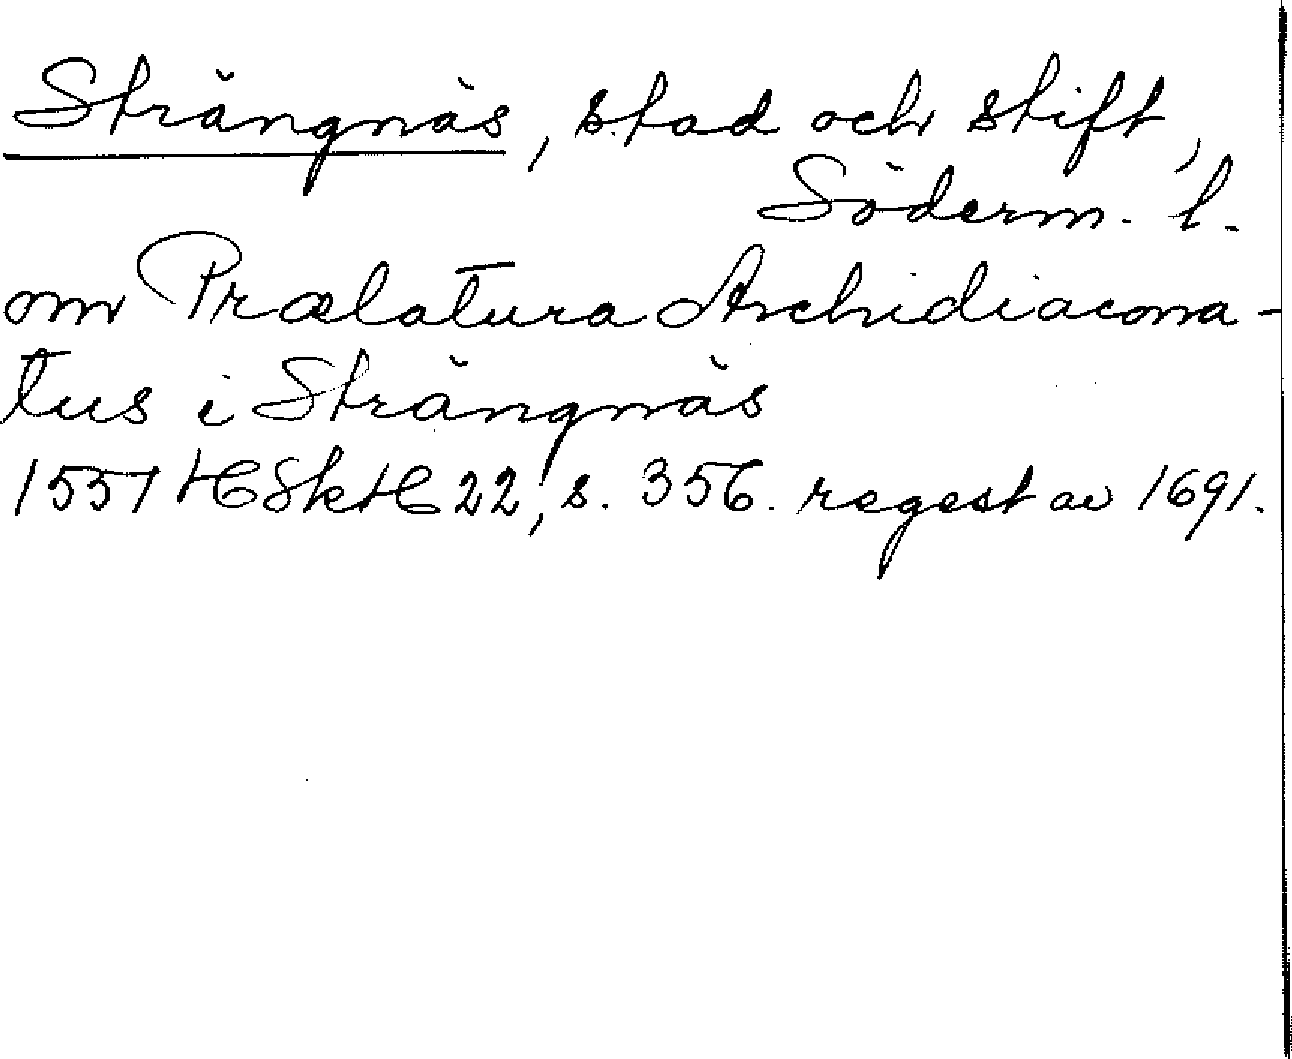 Strängnäs, stad och stift,
Söderm. l.
om Prælatura Archidiacona-
tus i Strängnäs
1557 HSkH 22, s. 356. regest av 1691.